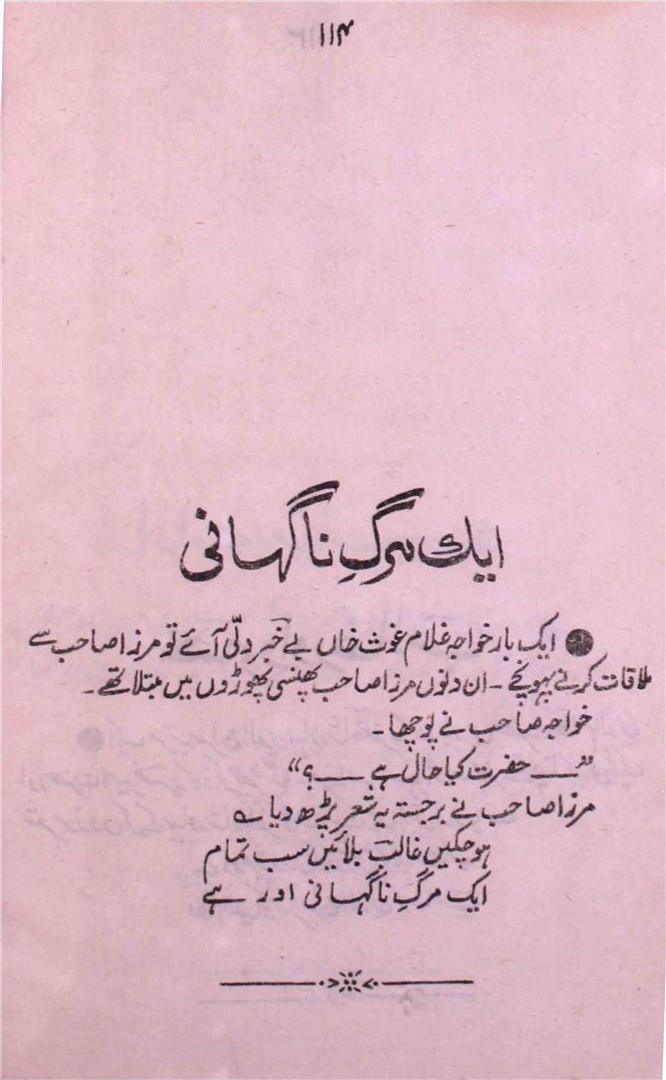 ۱۱۴
ایک مرگِ ناگہانی
● ایک بار خواجہ غلام غوث خاں بے خبر دلّی آئے تو مرزا صاحب سے
ملاقات کرنے پہونچے ۔ ان دنوں مرزا صاحب پھنسی پھوڑوں میں مبتلا تھے ۔
خواجہ صاحب نے پوچھا ۔
”—— حضرت کیا حال ہے ——؟“
مرزا صاحب نے برجستہ یہ شعر پڑھ دیا ؎
ہو چکیں غالبؔ بلائیں سب تمام
ایک مرگِ ناگہانی اور ہے